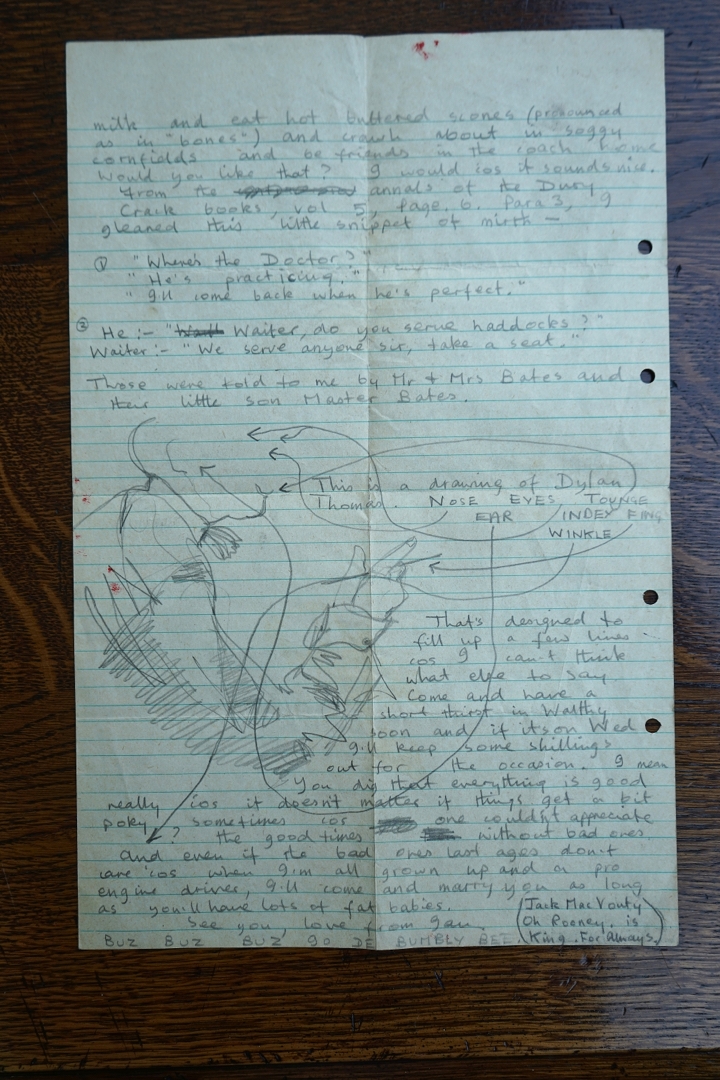 milk and eat hot buttered scones (pronounced
as in "bones") and crawh about in soggy
cornfields and be friends in the coach home
Would you like that? I would cos it sounds nice.
From the annals of the Dusy
Crack books, vol 5, Page, 6. Para 3, I
gleaned this little snippet of mirth —
① "Where's the Doctor?"
"He's practicing."
"I'll come back when he's perfect."
② He :- " Waiter, do you serve haddocks?"
Waiter :- "We serve anyone sir, take a seat."
Those were told to me by Mr + Mrs Bates and
their little son Master Bates.
This is a drawing of Dylan
Thomas. NOSE EYES TOUNGE
EAR INDEX FING
WINKLE
That's designed to
fill up a few lines
cos I can't think
what else to say
Come and have a
short thirst in Walthy
soon and if it's on Wed
I'll keep some shillings
out for the occasion. I mean
You dig that everything is good
really cos it doesn't matter if things get a bit
poky sometimes cos one couldn't appreciate
? the good times without bad ones
and even if the bad ones last ages don't
care 'cos when I'm all grown up and a pro
engine driver, I'll come and marry you as long
as you'll have lots of fat babies.
See you, love from Ian.
BUZ BUZ BUZ GO DE BUMBLY BEE
(Jack MacVonty
Oh Rooney, is
King. For Always.)